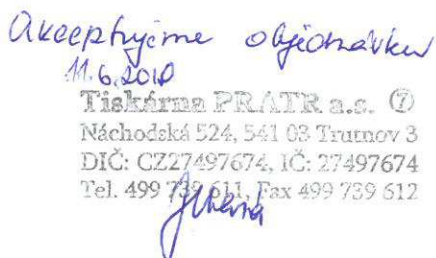 Akceptujeme objednávku
11.6.2010
Tiskárna PRATR a.s. ⑦
Náchodská 524, 541 03 Trutnov 3
DIČ: CZ27497674, IČ: 27497674
Tel. 499 739 611, Fax 499 739 612